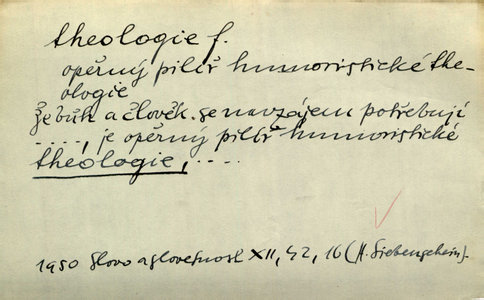 theologie f.
opěrný pilíř humoristické the-
ologie
Že bůh a člověk se navzájem potřebují
...., je opěrný pilíř humoristické
theologie, ....
1950 Slovo a slovesnost XII, 42, 16 (H. Siebenschein).